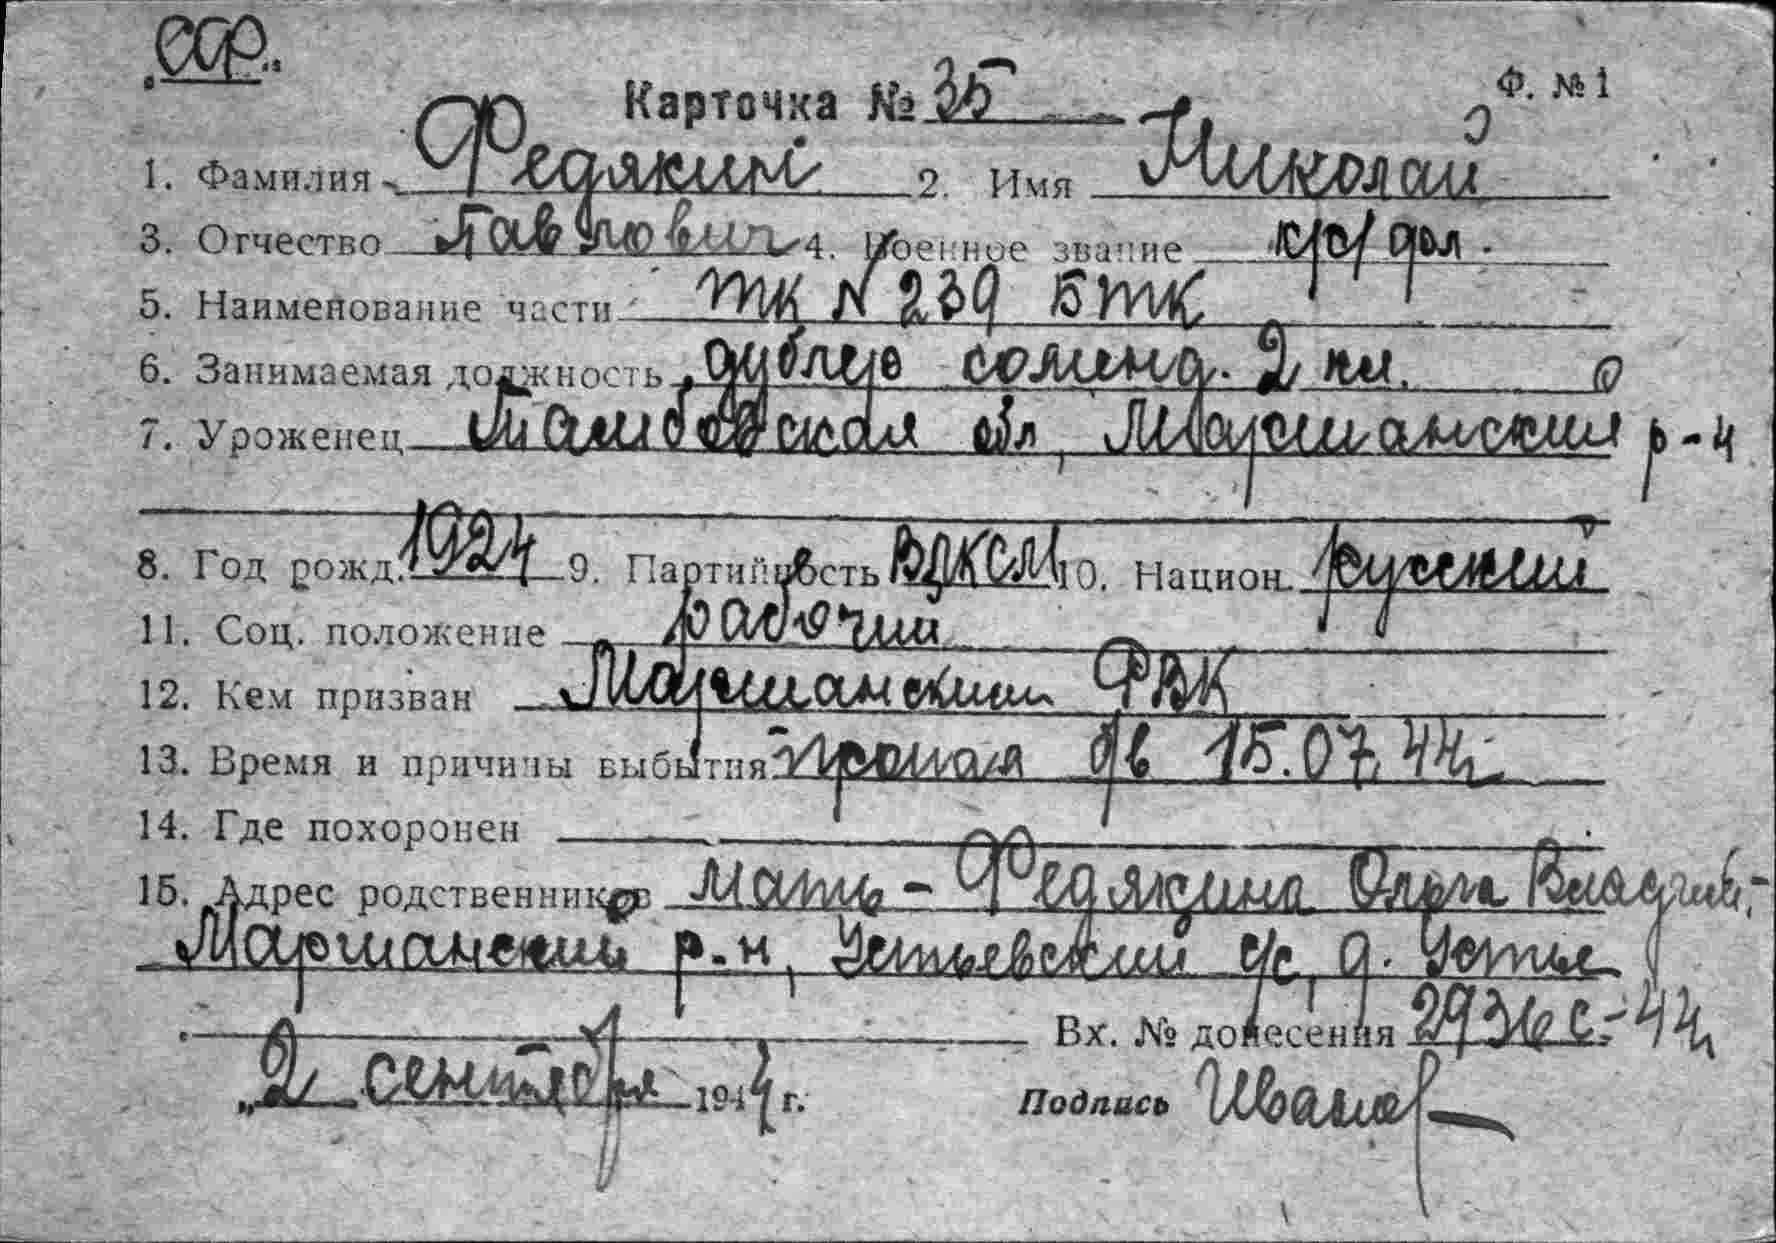 Карточка № 35 Ф. № 1
1. Фамилия Федякин 2. Имя Николай
3. Отчество Павлович 4. Военное звание к/с/ фл.
5. Наименование части ТК N 239 БТК
6. Занимаемая должность дублер команд. 2 кл.
7. Уроженец Тамбовская обл, Моршанский р-н
8. Год рожд. 1924 9. Партийность ВЛКСМ 10. Национ. русский
11. Соц. положение рабочий
12. Кем призван Моршанским РВК
13. Время и причины выбытия пропал б/в 15.07.44г.
14. Где похоронен
15. Адрес родственников Мать - Федякина Ольга Владим.-
Моршанский р-н, Устьевский с/с, д. Устье
Вх. № донесения 2936с.-44г
„2 сентября 1944 г. Подпись Иванов